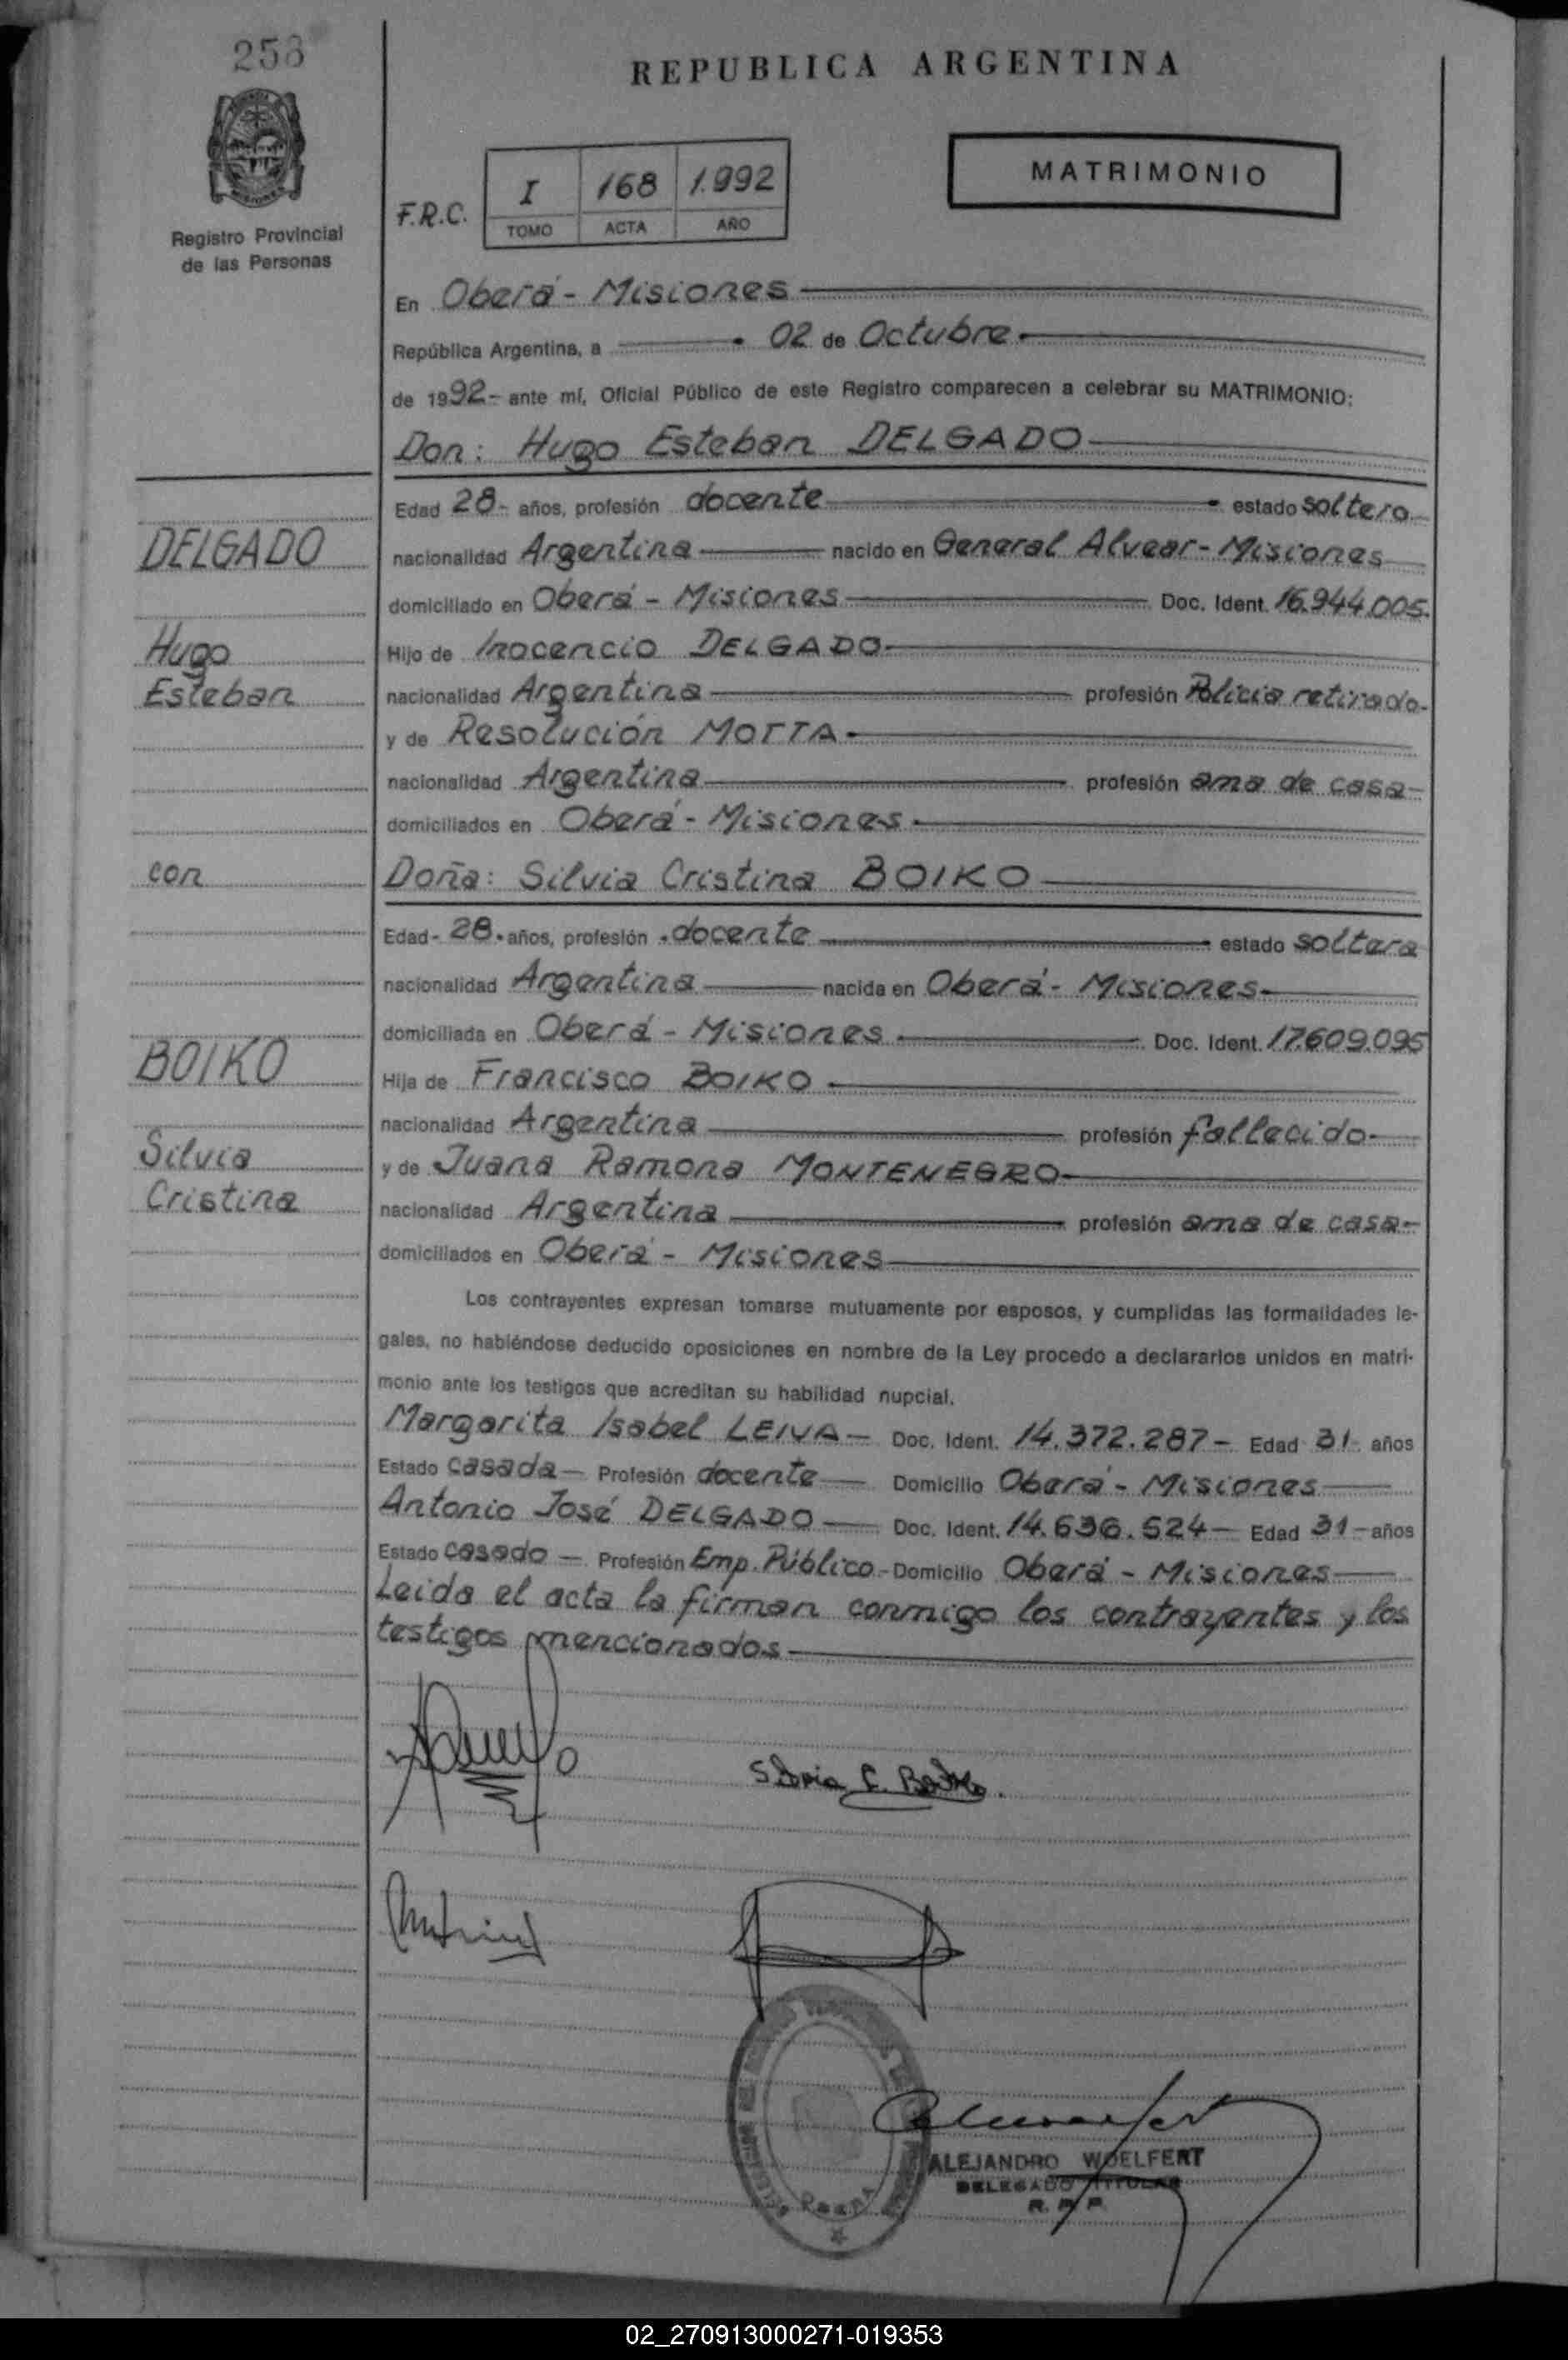 258
REPUBLICA ARGENTINA
MATRIMONIO
F.R.C.
I 168 1.992
TOMO ACTA AÑO
Registro Provincial
de las Personas
En Oberá - Misiones
República Argentina, a 02 de Octubre
de 1992- ante mí, Oficial Público de este Registro comparecen a celebrar su MATRIMONIO:
Don: Hugo Esteban DELGADO
Edad 28- años, profesión docente estado soltero
DELGADO
nacionalidad Argentina nacido en General Alvear - Misiones
domiciliado en Oberá - Misiones Doc. Ident. 16.944.005.
Hugo
Hijo de Inocencio DELGADO
Esteban
nacionalidad Argentina profesión Policía retirado.
y de Resolución MOTTA
nacionalidad Argentina profesión ama de casa-
domiciliados en Oberá - Misiones
con
Doña: Silvia Cristina BOIKO
Edad- 28. años, profesión .docente estado soltera
nacionalidad Argentina nacida en Oberá - Misiones
domiciliada en Oberá - Misiones Doc. Ident. 17.609.095
BOIKO
Hija de Francisco BOIKO
nacionalidad Argentina profesión fallecido
Silvia
y de Juana Ramona MONTENEGRO
Cristina
nacionalidad Argentina profesión ama de casa-
domiciliados en Oberá - Misiones
Los contrayentes expresan tomarse mutuamente por esposos, y cumplidas las formalidades le-
gales, no habiéndose deducido oposiciones en nombre de la Ley procedo a declararlos unidos en matri-
monio ante los testigos que acreditan su habilidad nupcial.
Margarita Isabel LEIVA - Doc. Ident. 14.372.287 - Edad 31 años
Estado casada - Profesión docente Domicilio Oberá - Misiones
Antonio José DELGADO Doc. Ident. 14.636.524 - Edad 31 - años
Estado casado - Profesión Emp. Público - Domicilio Oberá - Misiones
Leida el acta la firman conmigo los contrayentes y los
testigos mencionados
Silvia C. Boiko.
ALEJANDRO WOELFERT
DELEGADO TITULAR
R. P. P.
02_270913000271-019353